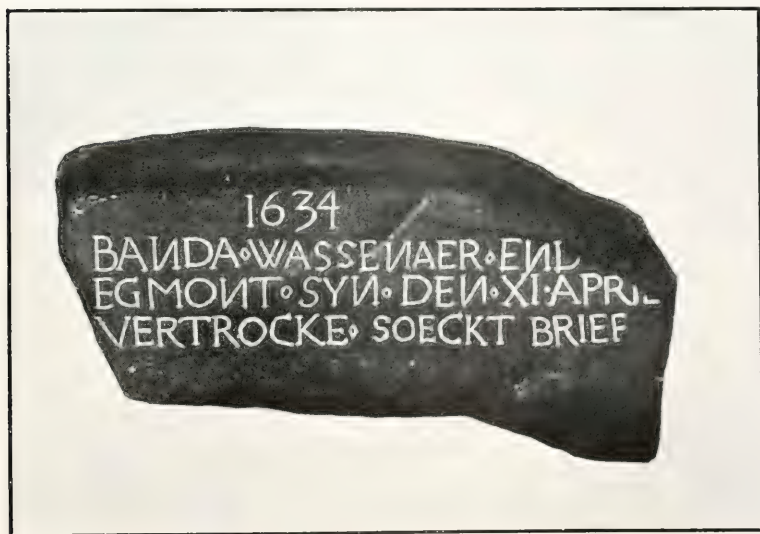 1634
BANDA⋄WASSENAER⋄EN
EGMONT⋄SYN⋄DEN⋄XI⋄APRIL
VERTROCKE⋄ SOECKT BRIEF